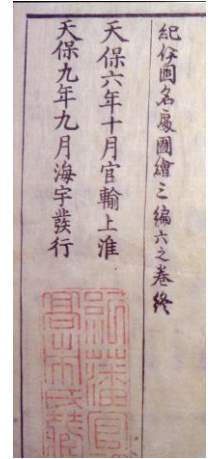 紀伊國名所圖繪三編六之巻終
天保六年十月官輸上淮
天保九年九月海宇發行